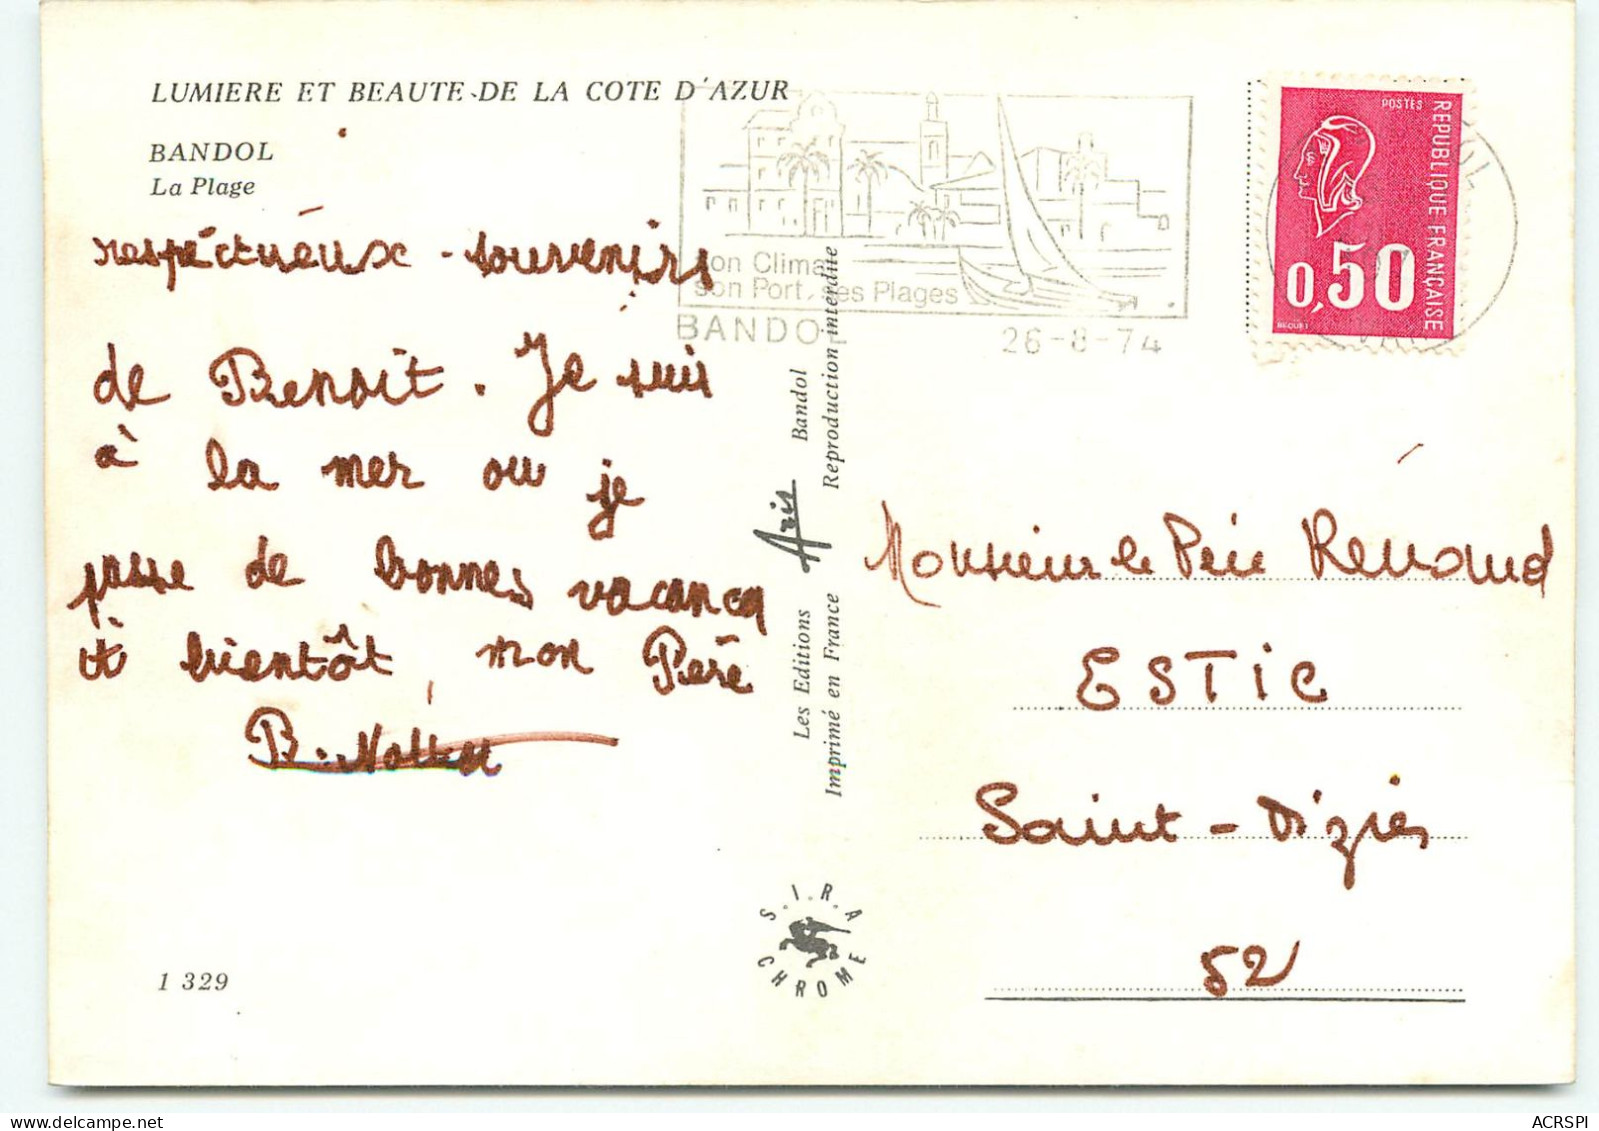 LUMIERE ET BEAUTE DE LA COTE D'AZUR
BANDOL
La Plage
respéctuéux - souvenirs
de Benoit. Je suis
à la mer ou je
passe de bonnes vacances
à bientôt, mon Père
B.
1 329
son Climat
son Port, ses Plages
BANDOL
26-8-74
Les Editions Aris Bandol
Imprimé en France Reproduction interdite
S.I.R.A
CHROME
POSTES
REPUBLIQUE FRANÇAISE
0,50
BEQUET
VAR
Monsieur le Père Renaud
ESTIC
Saint-Dizier
52
ACRSPI